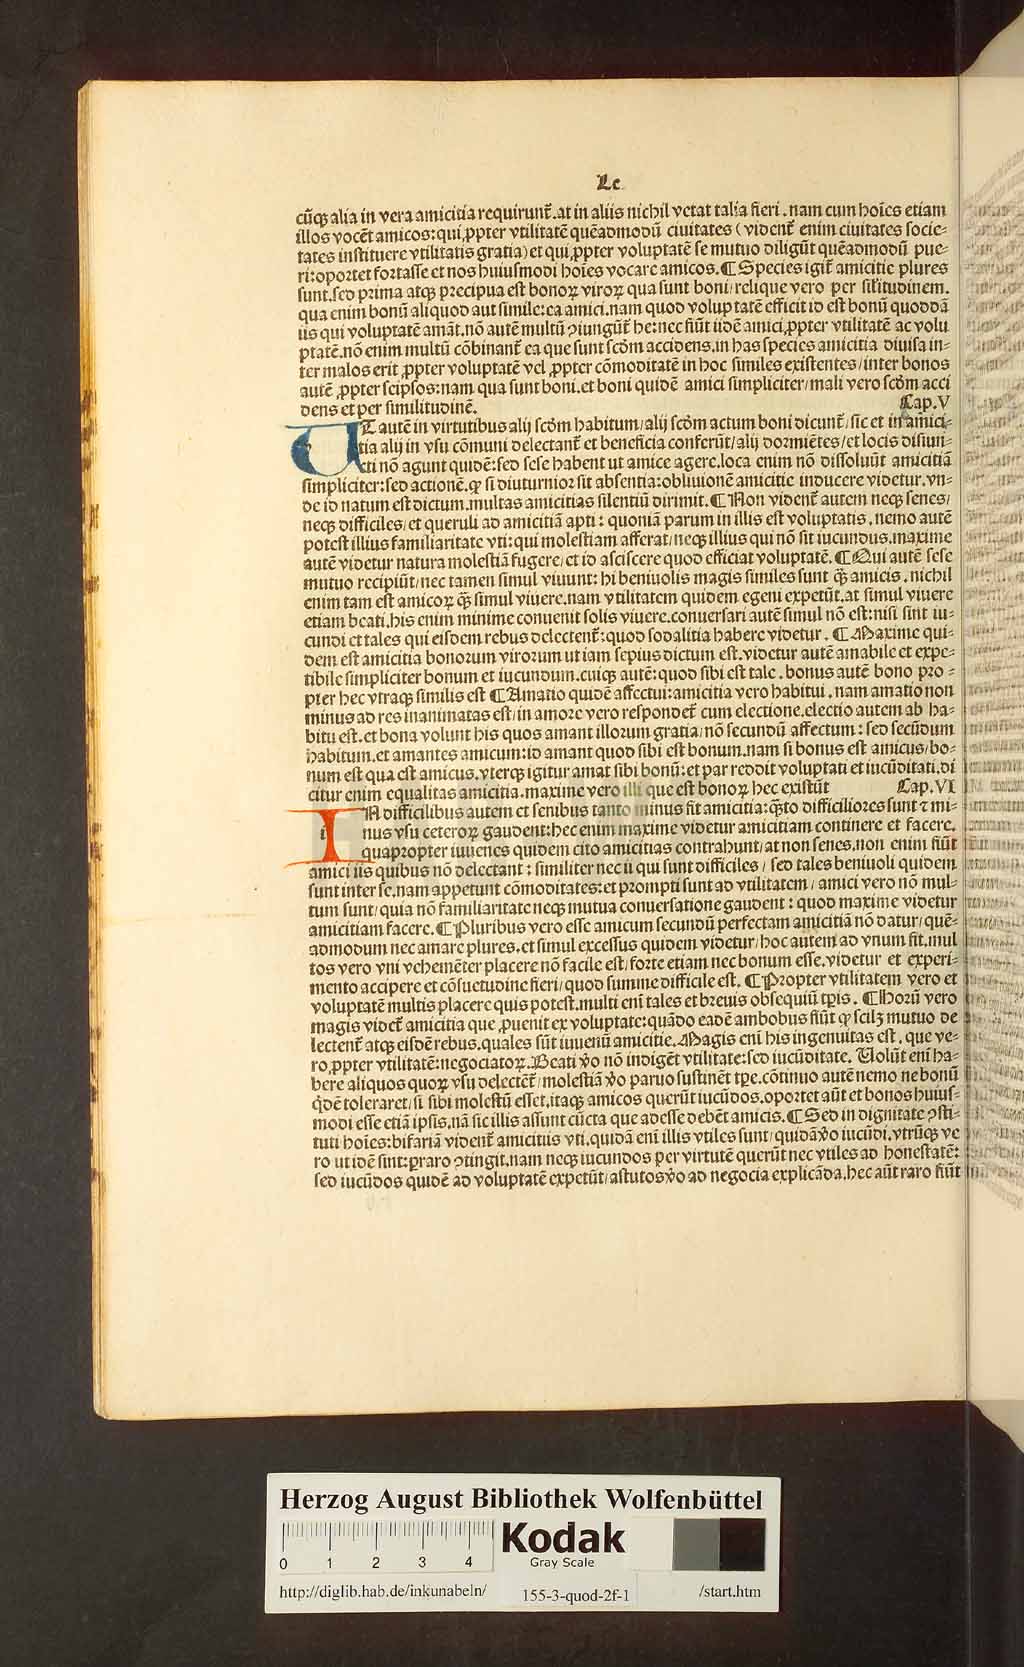 Le
cūqꝫ alia in vera amicitia requirunt᷑. at in aliis nichil vetat talia fieri. nam cum hoīes etiam
illos vocēt amicos: qui ꝓpter vtilitatē quēadmodū ciuitates (vident᷑ enim ciuitates socie-
tates instituere vtilitatis gratia) et qui ꝓpter voluptatē se mutuo diligūt quēadmodū pue-
ri: oportet fortasse et nos huiusmodi hoīes vocare amicos. ¶ Species igit᷑ amicitie plures
sunt. sed prima atqꝫ precipua est bonoꝝ viroꝝ qua sunt boni/ relique vero per sil'itudinem.
qua enim bonū aliquod aut simile: ea amici. nam quod voluptatē efficit id est bonū quoddā
iis qui voluptatē amāt. nō autē multū ↄiungūt᷑ he: nec fiūt iidē amici ꝓpter vtilitatē ac volu
ptatē. nō enim multū cōbinant᷑ ea que sunt scd̄m accidens. in has species amicitia diuisa in-
ter malos erit ꝓpter voluptatē vel ꝓpter cōmoditatē in hoc similes existentes/ inter bonos
autē ꝓpter seipsos: nam qua sunt boni. et boni quidē amici simpliciter/ mali vero scd̄m acci
dens et per similitudinē. Cap. V
UT autē in virtutibus alij scd̄m habitum/ alij scd̄m actum boni dicunt᷑/ sic et in amici-
tia alij in vsu cōmuni delectant᷑ et beneficia conferūt/ alij dormiētes/ et locis disiun-
cti nō agunt quidē: sed sese habent ut amice agere. loca enim nō dissoluūt amicitiā
simpliciter: sed actionē. ꝙ si diuturnior sit absentia: obliuionē amicitie inducere videtur. vn-
de id natum est dictum. multas amicitias silentiū dirimit. ¶ Non vident᷑ autem neqꝫ senes/
neqꝫ difficiles/ et queruli ad amicitiā apti: quoniā parum in illis est voluptatis. nemo autē
potest illius familiaritate vti: qui molestiam afferat/ neqꝫ illius qui nō sit iucundus. maxime
autē videtur natura molestiā fugere/ et id asciscere quod efficiat voluptatē. ¶ Qui autē sese
mutuo recipiūt/ nec tamen simul viuunt: hi beniuolis magis similes sunt q̄ꝫ amicis. nichil
enim tam est amicoꝝ q̄ꝫ simul viuere. nam vtilitatem quidem egeni expetūt. at simul viuere
etiam beati. his enim minime conuenit solis viuere. conuersari autē simul nō est: nisi sint iu-
cundi et tales qui eisdem rebus delectent᷑: quod sodalitia habere videtur. ¶ Maxime qui-
dem est amicitia bonorum virorum ut iam sepius dictum est. videtur autē amabile et expe-
tibile simpliciter bonum et iucundum. cuiqꝫ autē: quod sibi est tale. bonus autē bono pro-
pter hec vtraqꝫ similis est ¶ Amatio quidē affectui: amicitia vero habitui. nam amatio non
minus ad res inanimatas est/ in amore vero respondet᷑ cum electione. electio autem ab ha-
bitu est. et bona volunt his quos amant illorum gratia/ nō secundū affectum: sed secūdum
habitum. et amantes amicum: id amant quod sibi est bonum. nam si bonus est amicus/ bo-
num est qua est amicus. vterqꝫ igitur amat sibi bonū: et par reddit voluptati et iucūditati. di
citur enim equalitas amicitia. maxime vero illi que est bonoꝝ hec existūt Cap. VI
IN difficilibus autem et senibus tanto minus fit amicitia: q̄sto difficiliores sunt ⁊ mi-
nus vsu ceteroꝝ gaudent: hec enim maxime videtur amicitiam continere et facere.
quapropter iuuenes quidem cito amicitias contrahunt/ at non senes. non enim fiūt
amici iis quibus nō delectant: similiter nec ii qui sunt difficiles/ sed tales beniuoli quidem
sunt inter se. nam appetunt cōmoditates: et prompti sunt ad vtilitatem/ amici vero nō mul-
tum sunt/ quia nō familiaritate neqꝫ mutua conuersatione gaudent: quod maxime videtur
amicitiam facere. ¶ Pluribus vero esse amicum secundū perfectam amicitiā nō datur/ quē-
admodum nec amare plures. et simul excessus quidem videtur/ hoc autem ad vnum fit. mul
tos vero vni vehemēter placere nō facile est/ forte etiam nec bonum esse. videtur et experi-
mento accipere et cōsuetudine fieri/ quod summe difficile est. ¶ Propter vtilitatem vero et
voluptatē multis placere quis potest. multi eni tales et breuis obsequiū tp̄is. ¶ Horū vero
magis videt᷑ amicitia que ꝓuenit ex voluptate: quādo eadē ambobus fiūt ꝙ scilꝫ mutuo de
lectent᷑ atqꝫ eisdē rebus. quales sūt iuuenū amicitie. Magis enī his ingenuitas est. que ve-
ro ꝓpter vtilitatē: negociatoꝝ. Beati v̄o nō indigēt vtilitate: sed iucūditate. Uolūt enī ha-
bere aliquos quoꝝ vsu delectēt᷑/ molestiā v̄o paruo sustinēt tp̄e. cōtinuo autē nemo ne bonū
q̇dē toleraret/ si sibi molestū esset. itaqꝫ amicos querūt iucūdos. oportet aūt et bonos huius-
modi esse etiā ipsis. nā sic illis assunt cūcta que adesse debēt amicis. ¶ Sed in dignitate ↄsti-
tuti hoīes: bifariā vident᷑ amicitiis vti. quidā enī illis vtiles sunt/ quidā v̄o iucūdi. vtrūqꝫ ve
ro ut idē sint: ꝑraro ↄtingit. nam neqꝫ iucundos per virtutē querūt nec vtiles ad honestatē:
sed iucūdos quidē ad voluptatē expetūt/ astutos v̄o ad negocia explicāda. hec aūt raro fiūt
Herzog August Bibliothek Wolfenbüttel
0 1 2 3 4
Kodak
Gray Scale
http://diglib.hab.de/inkunabeln/ 155-3-quod-2f-1 /start.htm